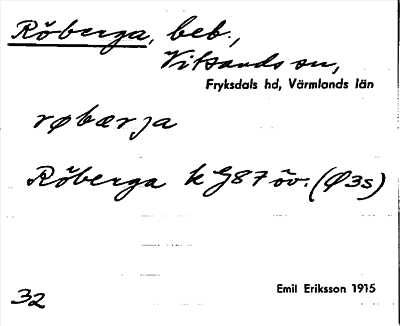 Röberga, beb.,
Vitsands sn,
Fryksdals hd, Värmlands län
røbærja
Röberga k G87 öv. (Ø3s)
32
Emil Eriksson 1915